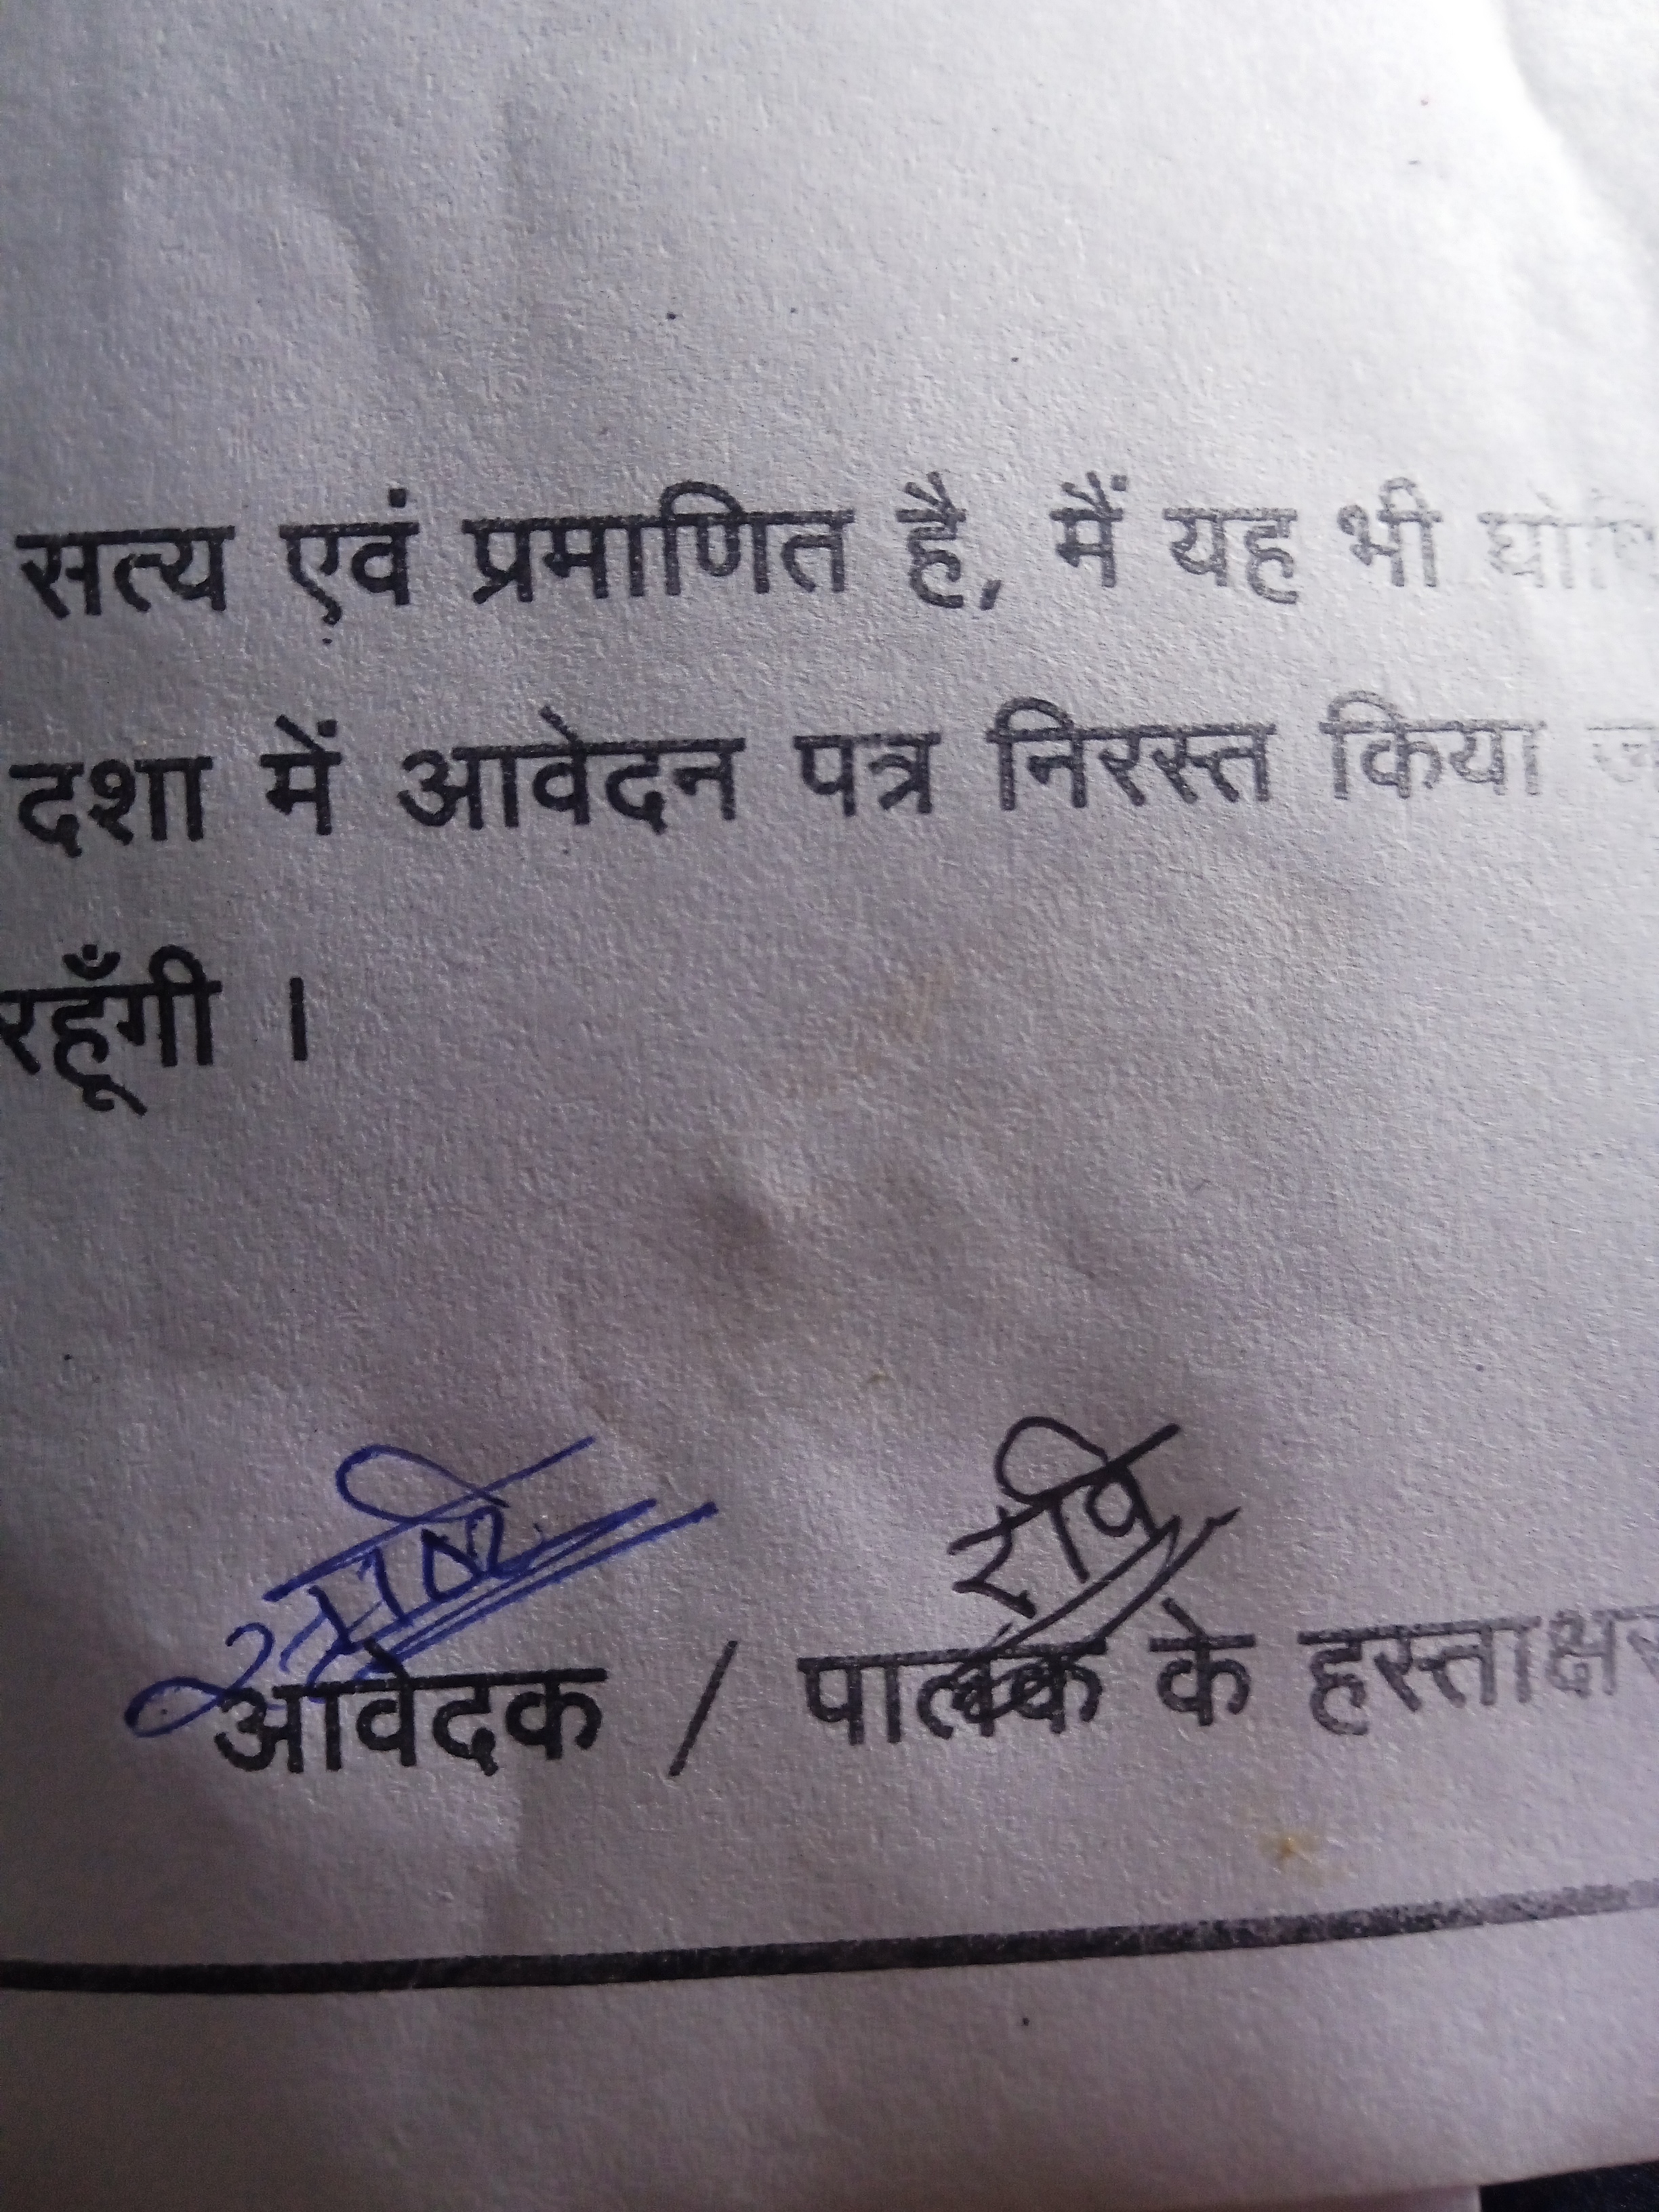 सत्य एवं प्रमाणित है, मैं यह भी
दशा में आवेदन पत्र निरस्त किया
रहूँगी ।
रवि
आवेदक / पालक के हस्ताक्षर